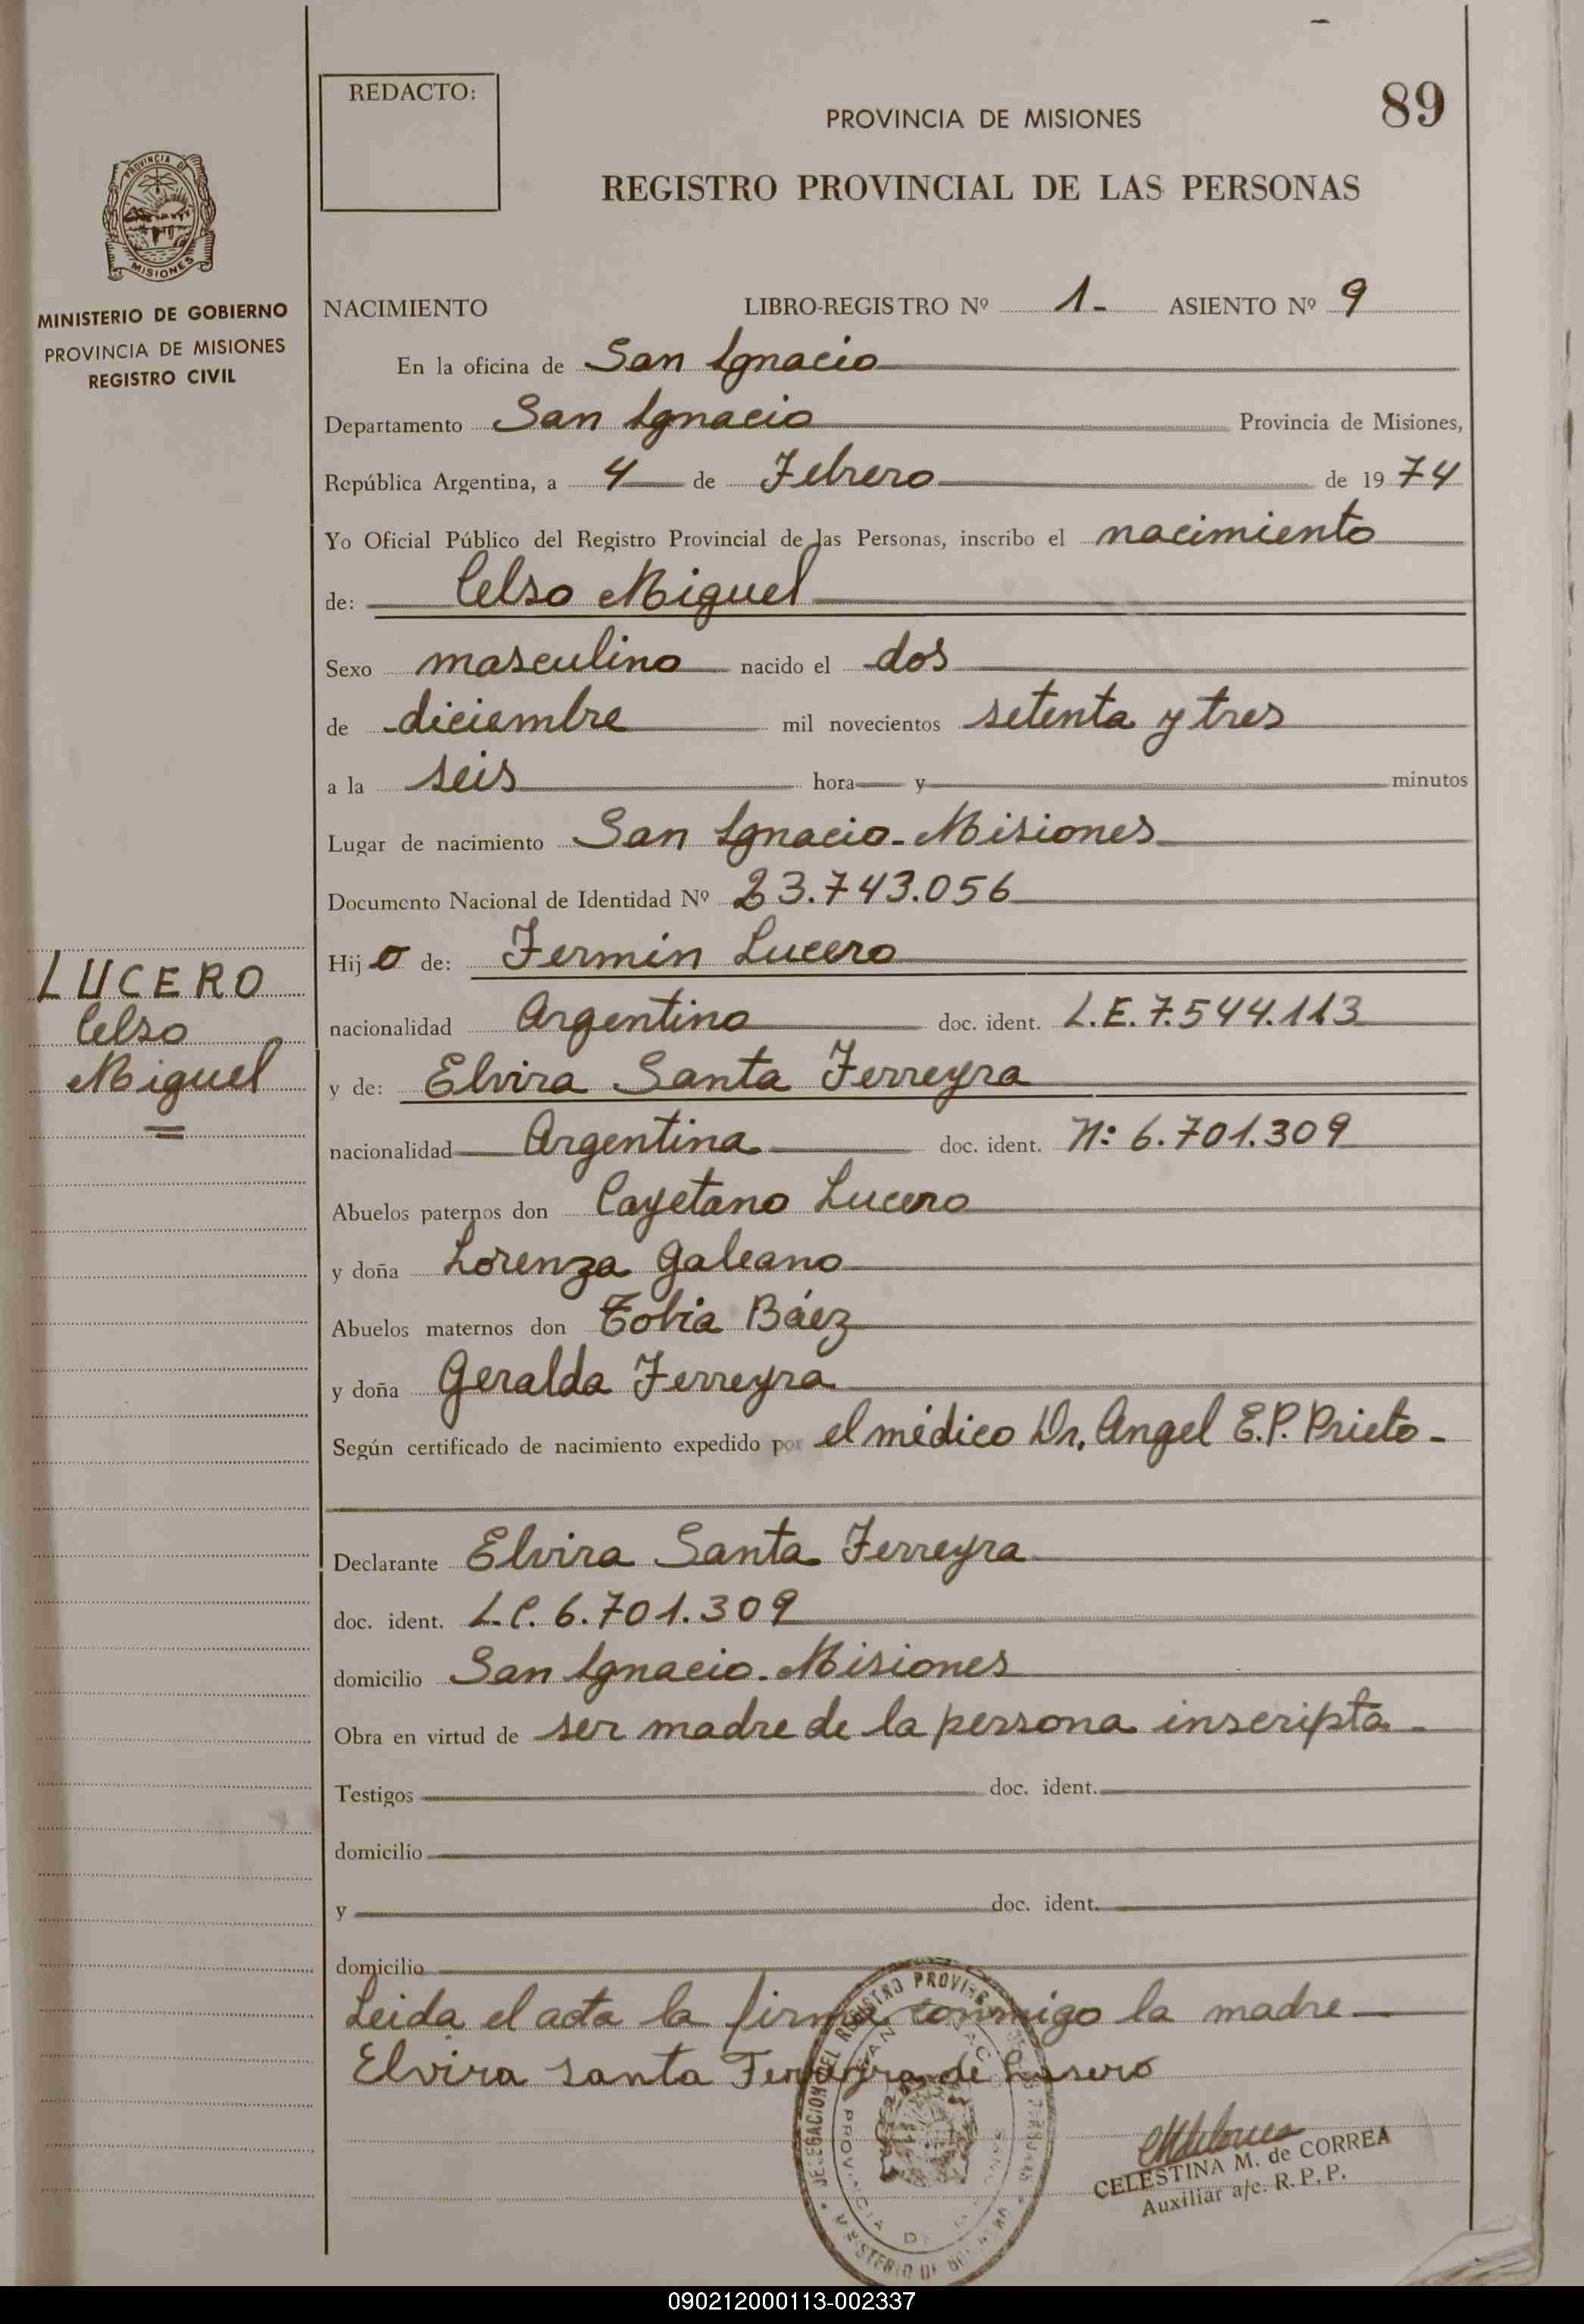 REDACTO:
PROVINCIA DE MISIONES
89
REGISTRO PROVINCIAL DE LAS PERSONAS
PROVINCIA DE
MISIONES
MINISTERIO DE GOBIERNO
PROVINCIA DE MISIONES
REGISTRO CIVIL
NACIMIENTO LIBRO-REGISTRO Nº 1- ASIENTO Nº 9
En la oficina de San Ignacio
Departamento San Ignacio Provincia de Misiones,
República Argentina, a 4 de Febrero de 1974
Yo Oficial Público del Registro Provincial de las Personas, inscribo el nacimiento
de: Celso Miguel
Sexo masculino nacido el dos
de diciembre mil novecientos setenta y tres
a la seis hora y minutos
Lugar de nacimiento San Ignacio - Misiones
Documento Nacional de Identidad Nº 23.743.056
LUCERO
Celso
Miguel
Hijo de: Fermín Lucero
nacionalidad Argentino doc. ident. L.E. 7.544.113
y de: Elvira Santa Ferreyra
nacionalidad Argentina doc. ident. Nº 6.701.309
Abuelos paternos don Cayetano Lucero
y doña Lorenza Galeano
Abuelos maternos don Tobia Báez
y doña Geralda Ferreyra
Según certificado de nacimiento expedido por el médico Dr. Angel E.P. Prieto -
Declarante Elvira Santa Ferreyra
doc. ident. L.C. 6.701.309
domicilio San Ignacio - Misiones
Obra en virtud de ser madre de la persona inscripta -
Testigos doc. ident.
domicilio
y doc. ident.
domicilio
Leida el acta la firma conmigo la madre
Elvira santa Ferreyra de Lusero
DELEGACION DEL REGISTRO
PROVINCIA DE
CELESTINA M. de CORREA
Auxiliar a/c. R.P.P.
090212000113-002337